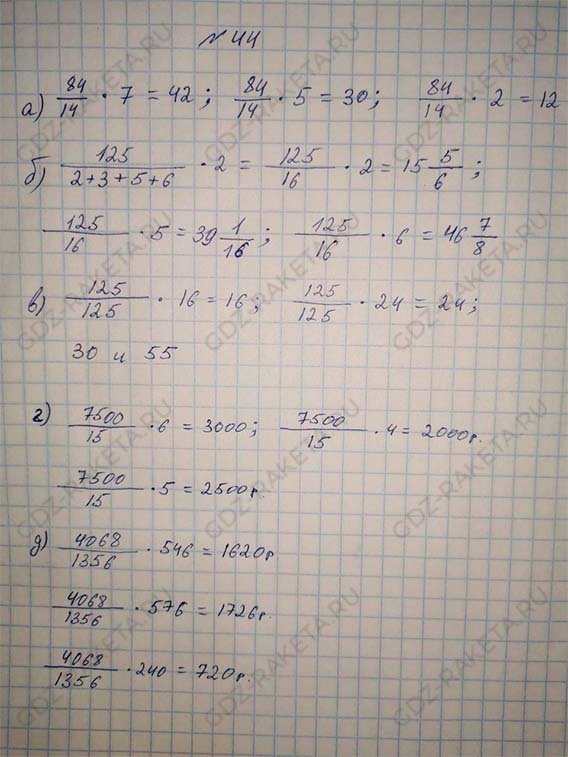 № 44
а) 84/14 · 7 = 42; 84/14 · 5 = 30; 84/14 · 2 = 12
б) 125/(2+3+5+6) · 2 = 125/16 · 2 = 15 5/6;
125/16 · 5 = 39 1/16; 125/16 · 6 = 46 7/8
в) 125/125 · 16 = 16; 125/125 · 24 = 24;
30 и 55
г) 7500/15 · 6 = 3000; 7500/15 · 4 = 2000р.
7500/15 · 5 = 2500р.
д) 4068/1356 · 546 = 1620р
4068/1356 · 576 = 1726р.
4068/1356 · 240 = 720р.
GDZ-RAKETA.RU